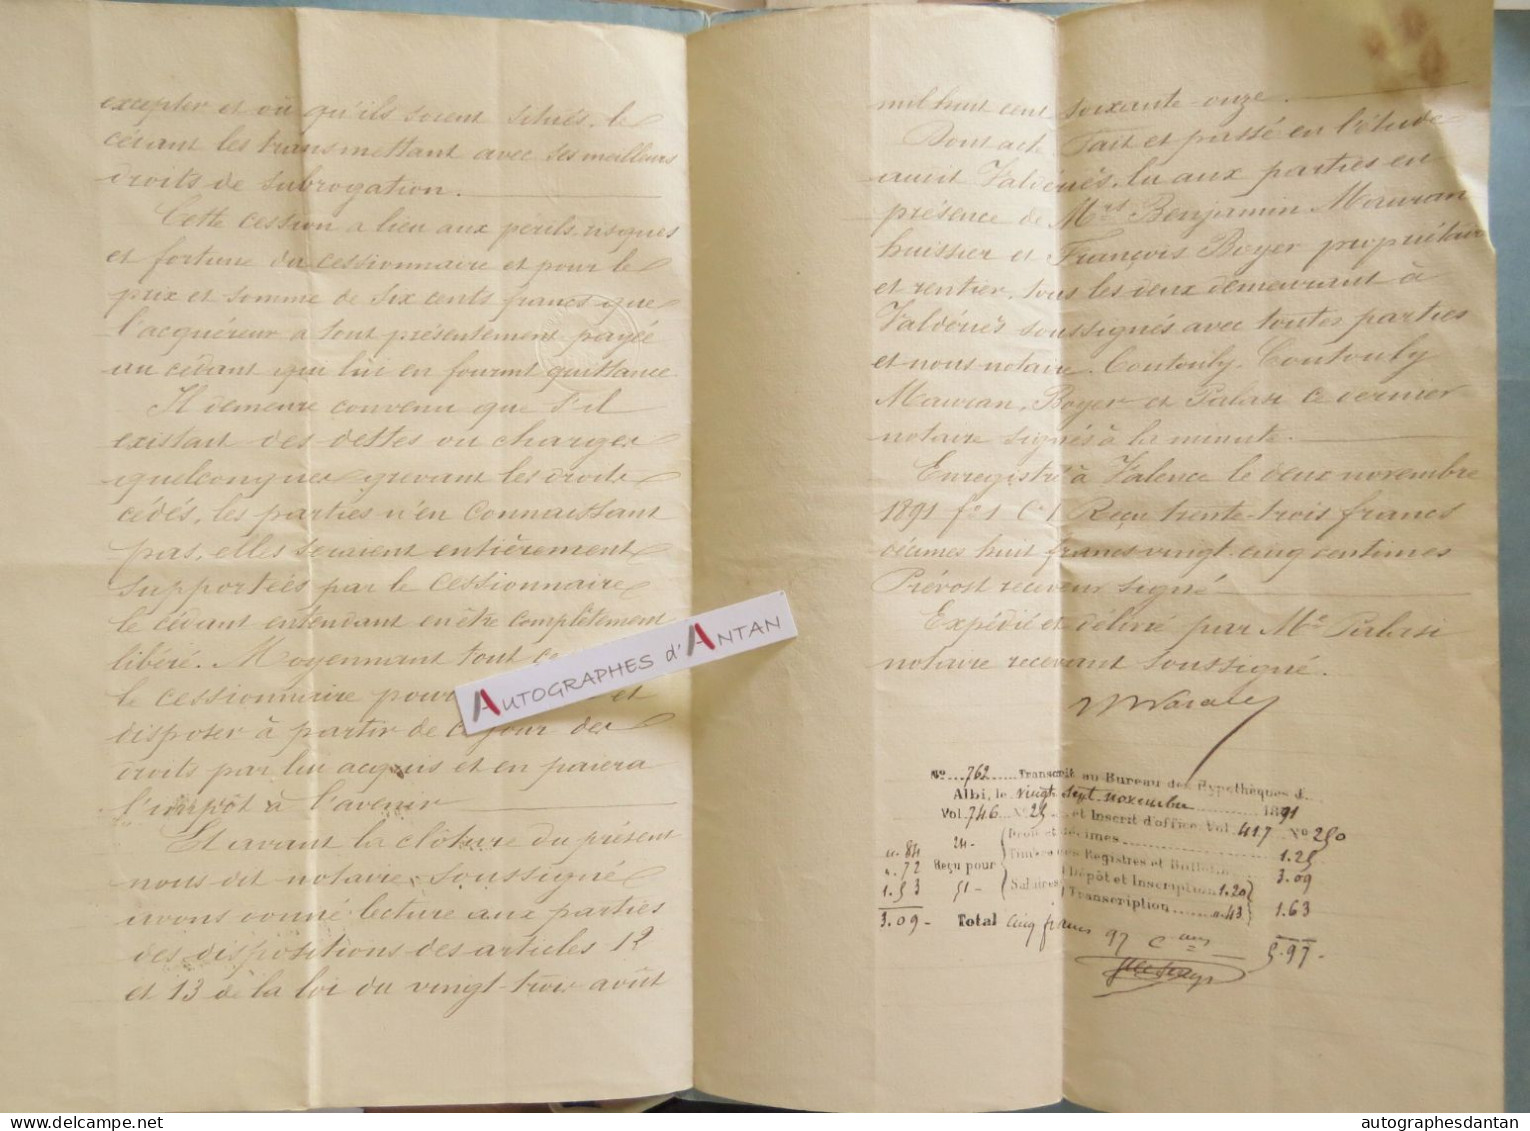 excepter et où qu'ils soient situés, le
cédant les transmettant avec ses meilleurs
droits de subrogation.
Cette cession a lieu aux périls, risques
et fortune du cessionnaire et pour le
prix et somme de six cents francs que
l'acquéreur a tout présentement payée
au cédant qui lui en fournit quittance
Il demeure convenu que s'il
existait des dettes ou charges
quelconques grevant les droits
cédés, les parties n'en connaissant
pas, elles seraient entièrement
supportées par le cessionnaire
le cédant entendant en être complètement
libéré. Moyennant tout ce
le cessionnaire pour et
disposer à partir de ce jour des
droits par lui acquis et en paiera
l'impôt à l'avenir
Et avant la clôture du présent
nous dit notaire, soussigné
avons donné lecture aux parties
des dispositions des articles 12
et 13 de la loi du vingt-trois août
mil huit cent soixante-onze.
Dont acte Fait et passé en l'étude
audit Valdériès, lu aux parties en
présence de Mrs Benjamin Mauran
huissier et François Boyer propriétaire
et rentier, tous les deux demeurant à
Valdériès soussignés avec toutes parties
et nous notaire. Coutouly, Coutouly
Mauran, Boyer et Palasi ce dernier
notaire signés à la minute.
Enregistré à Valence le deux novembre
1891 fo 1 Co 1 Reçu trente-trois francs
décimes huit francs vingt-cinq centimes
Prévost receveur signé
Expédié et délivré par Me Palasi
notaire recevant soussigné.
No 762 Transcrit au Bureau des Hypothèques d
Albi, le vingt sept novembre 1891
Vol. 746 No 25 et Inscrit d'office Vol. 417 No 250
Droit et décimes 1.25
Timbre des Registres et Bulletin 3.09
Reçu pour
Salaires Dépôt et Inscription 1.20
Transcription ".43 1.63
Total cinq francs 97 cmes 5.97
". 84 24
". 72
1.53 51
3.09
AUTOGRAPHES d'ANTAN
autographesdantan